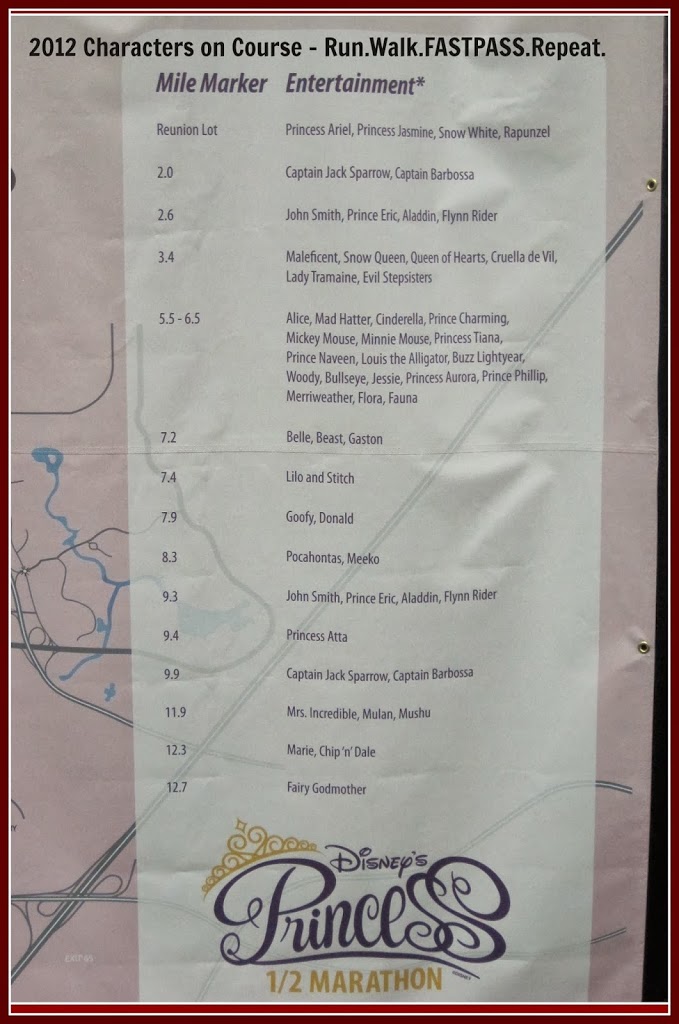 2012 Characters on Course - Run.Walk.FASTPASS.Repeat.
Mile Marker Entertainment*
Reunion Lot Princess Ariel, Princess Jasmine, Snow White, Rapunzel
2.0 Captain Jack Sparrow, Captain Barbossa
2.6 John Smith, Prince Eric, Aladdin, Flynn Rider
3.4 Maleficent, Snow Queen, Queen of Hearts, Cruella de Vil,
Lady Tramaine, Evil Stepsisters
5.5 - 6.5 Alice, Mad Hatter, Cinderella, Prince Charming,
Mickey Mouse, Minnie Mouse, Princess Tiana,
Prince Naveen, Louis the Alligator, Buzz Lightyear,
Woody, Bullseye, Jessie, Princess Aurora, Prince Phillip,
Merriweather, Flora, Fauna
7.2 Belle, Beast, Gaston
7.4 Lilo and Stitch
7.9 Goofy, Donald
8.3 Pocahontas, Meeko
9.3 John Smith, Prince Eric, Aladdin, Flynn Rider
9.4 Princess Atta
9.9 Captain Jack Sparrow, Captain Barbossa
11.9 Mrs. Incredible, Mulan, Mushu
12.3 Marie, Chip 'n' Dale
12.7 Fairy Godmother
Disney's
Princess
1/2 MARATHON